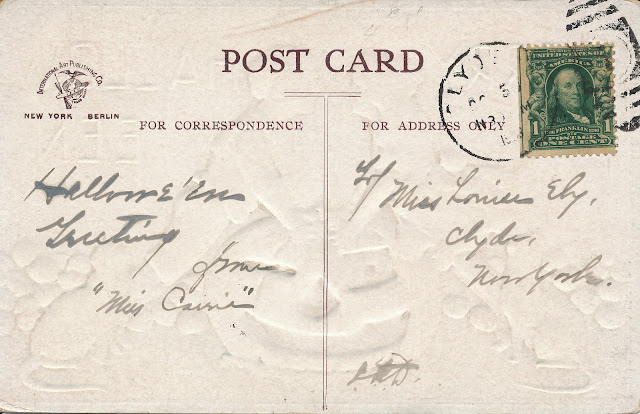 POST CARD
INTERNATIONAL ART PUBLISHING CO.
NEW YORK BERLIN
FOR CORRESPONDENCE
FOR ADDRESS ONLY
CLYDE
UNITED STATES OF
AMERICA
FRANKLIN
1 POSTAGE 1
ONE CENT
Hallowe'en
Greeting
from
"Miss Carrie"
Miss Louise Ely,
Clyde,
New York.